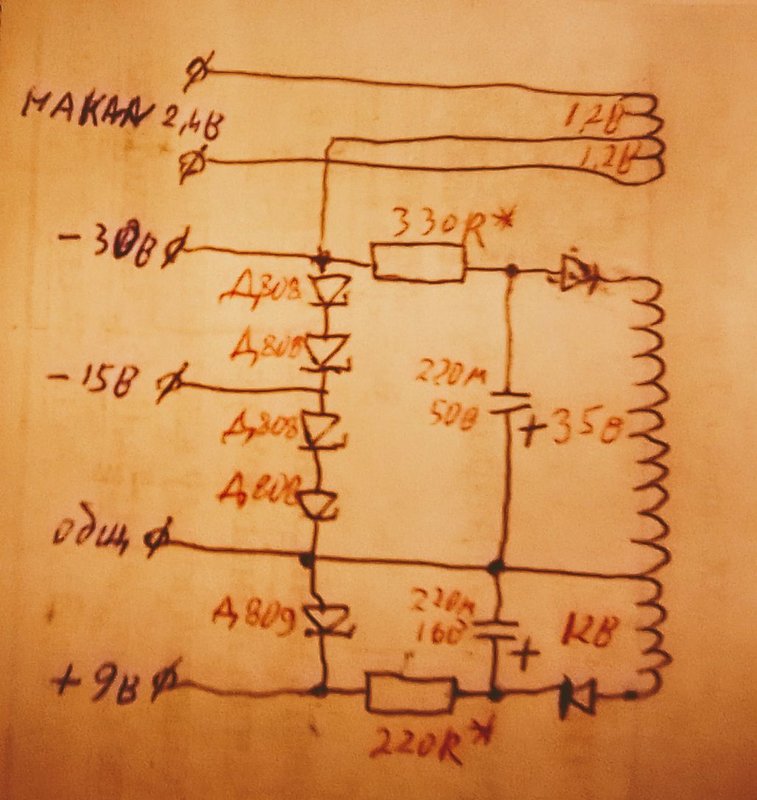 1,2В
НАКАЛ 2,4В
1,2В
330R*
-30В
Д808
Д808
-15В
220м
50В
+35В
Д808
Д808
общ
Д809
220м
16В
12В
+
+9В
220R*